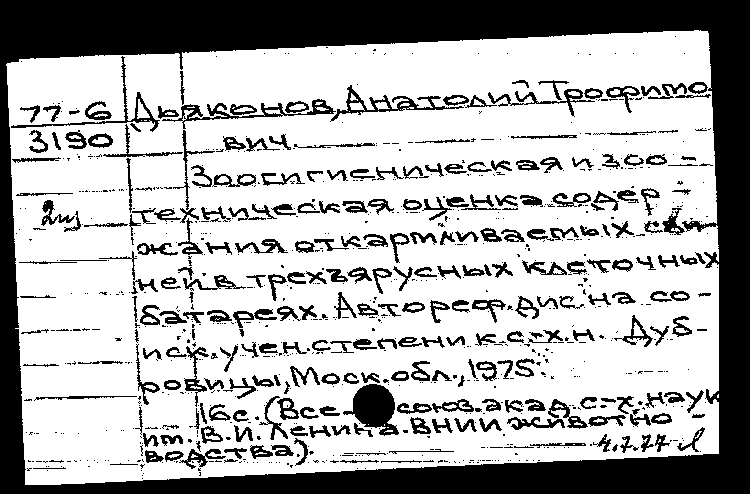 77-6 Дьяконов, Анатолий Трофимо
3190 вич.
Зоогигиеническая и зоо-
2из техническая оценка содер-
жания откармливаемых сви-
ней в трехъярусных клеточных
батареях. Автореф. дис. на со-
иск. учен. степени к. с.-х. н. Дуб-
ровицы, Моск. обл., 1975.
16 с. (Все-союз. акад. с.-х. наук
им. В. И. Ленина. ВНИИ животно-
водства).
4.7.77